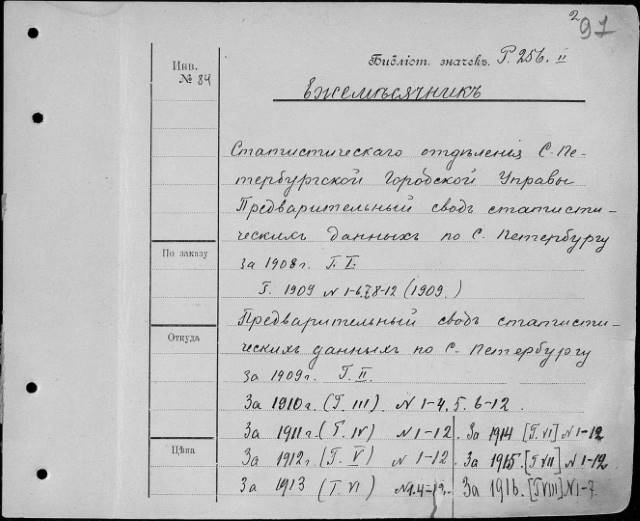 2
91
Библіот. значекъ Г. 256. II
Инв.
№ 84
Ежемѣсячникъ
Статистическаго отдѣленія С.-Пе-
тербургской Городской Управы
Предварительный сводъ статисти-
ческихъ данныхъ по С. Петербургу
По заказу
За 1908 г. Г. I.
Г. 1909 № 1-6.7.8-12 (1909.)
Предварительный сводъ статисти-
Откуда
ческихъ данныхъ по С. Петербургу
За 1909 г. Г. II.
За 1910 г. (Г. III) № 1-4. 5. 6-12.
За 1911 г. (Г. IV) № 1-12. За 1914 [Г. VI] № 1-12
Цѣна
За 1912 г. (Г. V) № 1-12. За 1915. [Г VII] № 1-12.
За 1913 (Г. VI) № 1.4-12. За 1916. [Г VIII] № 1-7